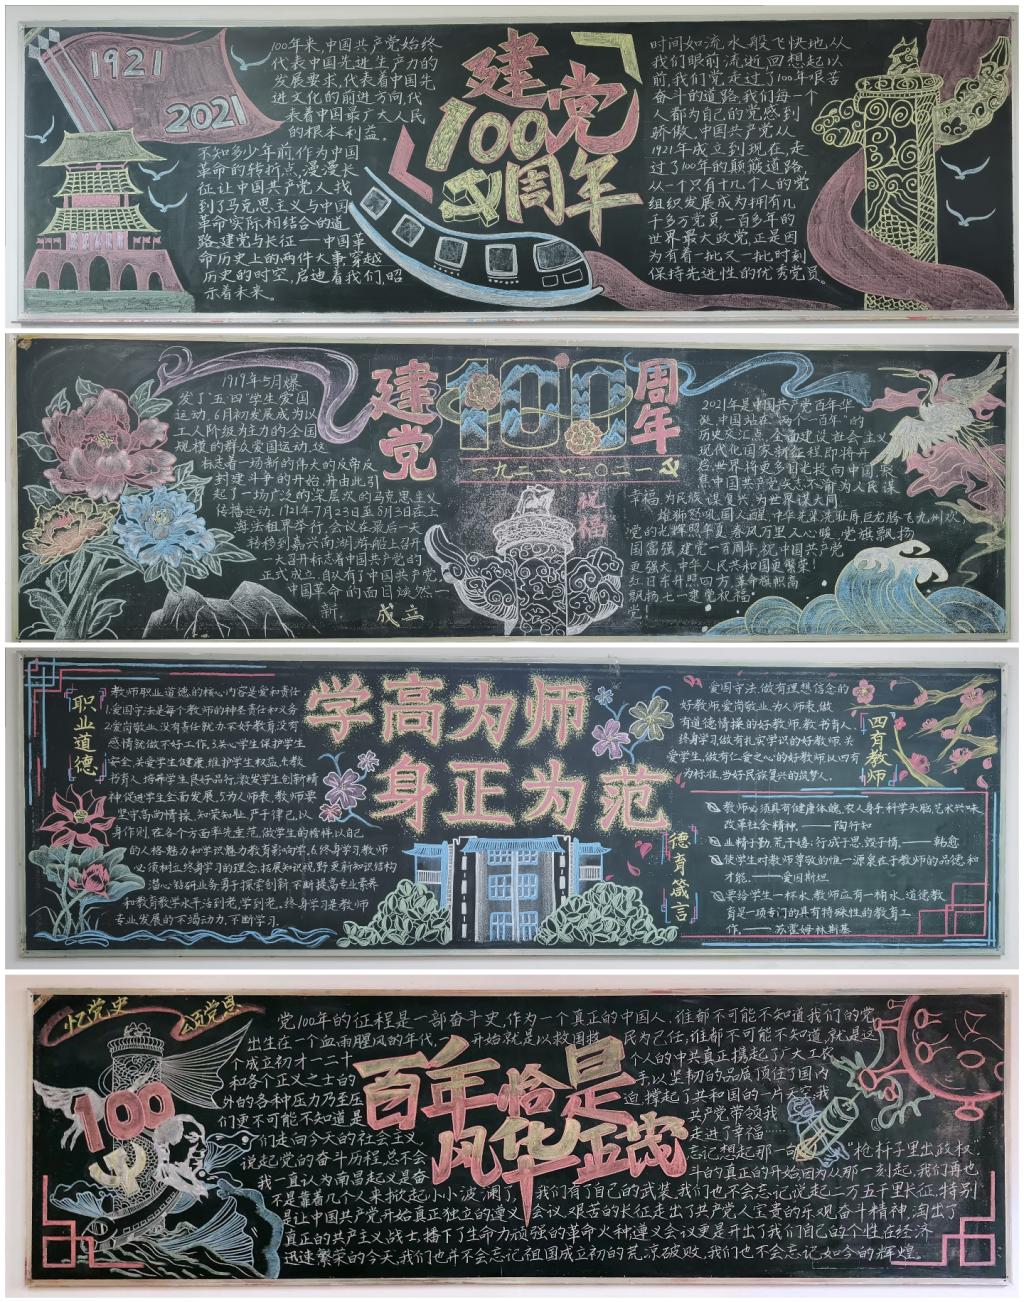 1921
2021
100年来,中国共产党始终
代表中国先进生产力的
发展要求,代表着中国先
进文化的前进方向,代
表着中国最广大人民
的根本利益。
不知多少年前,作为中国
革命的转折点,漫漫长
征让中国共产党人找
到了马克思主义与中国
革命实际相结合的道
路,建党与长征——中国革
命历史上的两件大事,穿越
历史的时空,启迪着我们,昭
示着未来。
建党
100
周年
时间如流水般飞快地从
我们眼前流逝,回想起以
前,我们党走过了100年艰苦
奋斗的道路,我们每一个
人都为自己的党感到
骄傲。中国共产党从
1921年成立到现在,走
过了100年的颠簸道路,
从一个只有十几个人的党
组织发展成为拥有几
千多万党员,一百多年的
世界最大政党,正是因
为有着一批又一批时刻
保持先进性的优秀党员。
1919年5月爆
发了“五·四”学生爱国
运动,6月初发展成为以
工人阶级为主力的全国
规模的群众爱国运动,这
标志着一场新的伟大的反帝反
封建斗争的开始,并由此引
起了一场广泛的深层次的马克思主义
传播运动,1921年7月23日至8月3日在上
海法租界举行,会议在最后一天
转移到嘉兴南湖游船上召开,
一大召开标志着中国共产党的
正式成立,自从有了中国共产党,
中国革命的面目焕然一
新
成立
建党
100
周年
一九二一~二〇二一
祝福
2021年是中国共产党百年华
诞,中国站在“两个一百年”的
历史交汇点,全面建设社会主义
现代化国家新征程即将开
启,世界将更多目光投向中国,聚
焦中国共产党矢志不渝为人民谋
幸福,为民族谋复兴,为世界谋大同。
雄狮怒吼国人醒,中华儿女洗耻辱巨龙腾飞九州欢,
党的光辉照华夏,春风万里人心暖,党旗飘扬
国富强,建党一百周年,祝中国共产党
更强大,中华人民共和国更繁荣!
红日东升照四方,革命旗帜高
飘扬,七一建党祝福
党!
职业道德
教师职业道德的核心内容是爱和责任
1.爱国守法是每个教师的神圣责任和义务
2.爱岗敬业,没有责任就办不好教育,没有
感情就做不好工作,3.关心学生保护学生
安全,关爱学生健康,维护学生权益,4.教
书育人,培养学生良好品行,激发学生创新精
神,促进学生全面发展,5.为人师表,教师要
坚守高尚情操,知荣知耻,严于律己,以
身作则,在各个方面率先垂范,做学生的榜样,以自己
的人格魅力和学识魅力教育影响学,6.终身学习,教师
必须树立终身学习的理念,拓展知识视野,更新知识结构
潜心钻研业务,勇于探索创新,不断提高专业素养
和教育教学水平,活到老,学到老,终身学习是教师
专业发展的不竭动力,不断学习。
学高为师
身正为范
爱国守法,做有理想信念的
好教师,爱岗敬业,为人师表,做
有道德情操的好教师,教书育人,
终身学习,做有扎实学识的好教师,关
爱学生,做有仁爱之心的好教师,以四有
为标准,当好民族复兴的筑梦人。
四有教师
德育箴言
教师必须具有健康体魄,农人身手,科学头脑,艺术兴味
改革社会精神。——陶行知
业精于勤,荒于嬉,行成于思,毁于惰。——韩愈
使学生对教师尊敬的惟一源泉在于教师的品德和
才能。——爱因斯坦
要给学生一杯水,教师应有一桶水,道德教
育是一项专门的具有特殊性的教育工
作。——苏霍姆林斯基
忆党史
颂党恩
100
党100年的征程是一部奋斗史,作为一个真正的中国人,谁都不可能不知道我们的党
出生在一个血雨腥风的年代,一开始就是以救国救民为己任,谁都不可能不知道,就是这
个成立初才一二十个人的中共真正携起了广大工农
和各个正义之士的手,以坚韧的品质顶住了国内
外的各种压力乃至压迫,撑起了共和国的一片天空,我
们更不可能不知道是共产党带领我
们走向今天的社会主义,走进了幸福
说起党的奋斗历程,总不会忘记想起那一句“枪杆子里出政权”
我一直认为南昌起义是奋斗的真正的开始,因为从那一刻起,我们再也
不是靠着几个人来掀起小小波澜了,我们有了自己的武装,我们也不会忘记说起二万五千里长征,特别
是让中国共产党开始真正独立的遵义会议,艰苦的长征走出了共产党人宝贵的乐观奋斗精神,淘出了
真正的共产主义战士,播下了生命力顽强的革命火种,遵义会议更是开出了我们自己的个性,在经济
迅速繁荣的今天,我们也并不会忘记祖国成立初的荒凉破败,我们也不会忘记如今的辉煌。
百年恰是
风华正茂